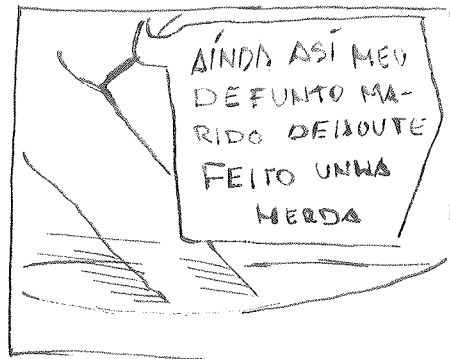 AÍNDA ASÍ MEU
DEFUNTO MA-
RIDO DEIXOUTE
FEITO UNHA
MERDA